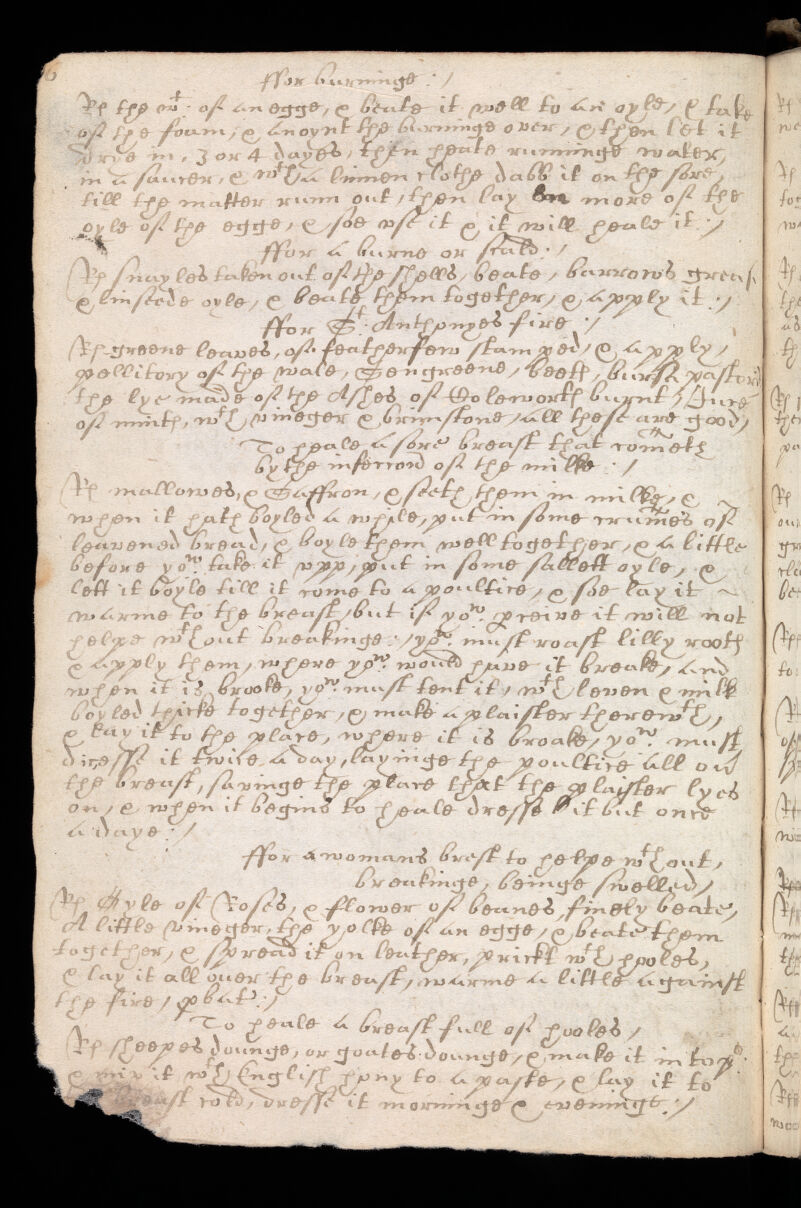 ffor burninge :/
Rx the wt. of an egge, & beate it well to an oyle, & take
of the foam, & anoynt the burninge over, & then let it
drye in, 3 or 4 dayes, then heate runninge water,
in a saucer, & wth a linnen clothe dabb it on the sore,
till the matter runn out, then lay on more of the
oyle of the egge, & soe vse it & it will heale it :/
ffor a burne or scald :/
Rx snayles taken out of the shells, beate, barrows grease
& linseede oyle, & beate them together, & apply it :/
ffor St. Anthonyes fire :/
Rx greene leaves, of featherfew stamped, & apply,
pellitory of the wale, Sengreene, beets, bursa pastoris
the lye made of the Ashes of Coleworth burnt, Juce
of minth, wth vineger & brimstone, all these are good,
To heale a sore breast that cometh
by the infeccond of the milke :/
Rx mallowes, & Saffron, & seeth them in milke, & ~
when it hath boyled a while, put in some crumes of
leavened bread, & boyle them well together, & a little
before you take it vpp, put in some sallett oyle, &
lett it boyle till it come to a poultice, & soe lay it ~
warme to the breast, but if you perceive it will not
helpe wthout breakinge :/ you must roast lilly rooth
& apply them, where you would have it breake, and
when it is brooke, you must tent it, wth leven & milk
boyled thicke together, & make a plaister therewth,
& lay it to the place, where it is broake, you must
dresse it twice a day, layinge the poultice all on
the breast, savinge the place that the plaister lyes
on, & when it begins to heale dresse it but once
a daye :/
ffor a womans brest to helpe wthout,
breakinge, beinge swelled,
Rx Oyle of Roses, & flower of beanes, finely beate,
A little vineger, the yolke of an egge, & beate them
together, & spread it on leather, prickt wth hooles,
& lay it all over the breast, warme a little against
the fire, pbat :/
To heale a breast full of hooles,
Rx sheepes dounge, or goates dounge, & make it into po:
& mix it wth English hony to a paste, & lay it to
breast cold, dresse it morninge & eveninge :/